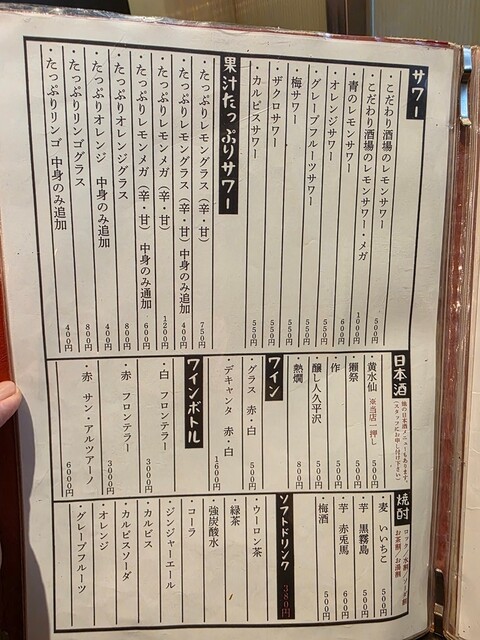 サワー
・こだわり酒場のレモンサワー 500円
・こだわり酒場のレモンサワー・メガ 1000円
・青のレモンサワー 600円
・オレンジサワー 550円
・グレープフルーツサワー 550円
・梅サワー 550円
・ザクロサワー 550円
・カルピスサワー 550円
果汁たっぷりサワー
・たっぷりレモングラス(辛・甘) 750円
・たっぷりレモングラス(辛・甘)中身のみ追加 400円
・たっぷりレモンメガ(辛・甘) 1200円
・たっぷりレモンメガ(辛・甘)中身のみ通加 600円
・たっぷりオレンジグラス 800円
・たっぷりオレンジ 中身のみ追加 400円
・たっぷりリンゴグラス 800円
・たっぷりリンゴ 中身のみ追加 400円
日本酒
他の日本酒メニューもあります。
(スタッフにお申し付け下さい)
・黄水仙 ※当店一押し 500円
・獺祭 500円
・作 500円
・醸し人九平次 500円
・熱燗 800円
ワイン
・グラス 赤・白 500円
・デキャンタ 赤・白 1600円
ワインボトル
・白 フロンテラー 3000円
・赤 フロンテラー 3000円
・赤 サン・アルツアーノ 6000円
焼酎
ロック/水割/ソーダ割
お茶割/お湯割
・麦 いいちこ 500円
・芋 黒霧島 500円
・芋 赤兎馬 600円
・梅酒 500円
ソフトドリンク 380円
・ウーロン茶
・緑茶
・強炭酸水
・コーラ
・ジンジャーエール
・カルピス
・カルピスソーダ
・オレンジ
・グレープフルーツ